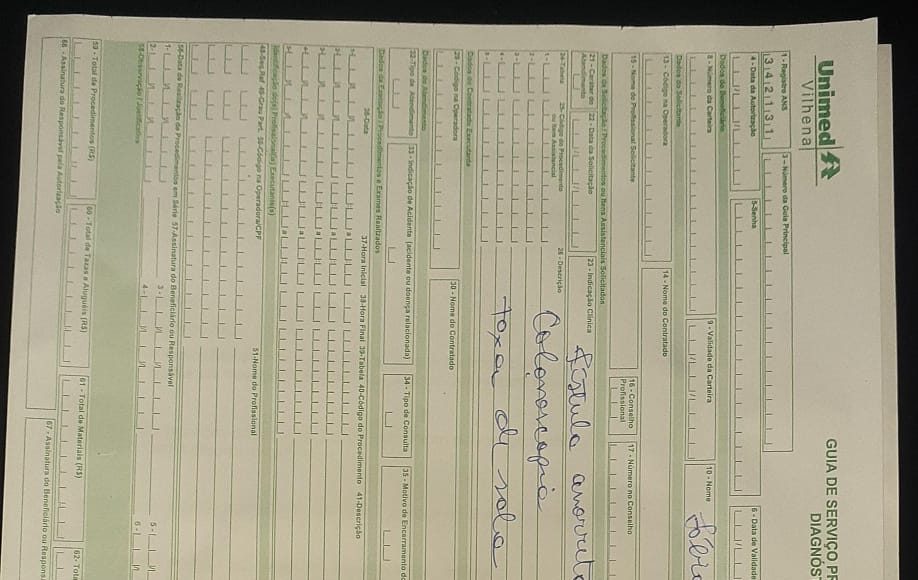 Unimed
Vilhena
GUIA DE SERVIÇO PR
DIAGNÓS
1 - Registro ANS
342131
3 - Número da Guia Principal
4 - Data da Autorização
5-Senha
6 - Data de Validade
Dados do Beneficiário
8 - Número da Carteira
9 - Validade da Carteira
10 - Nome
Dados do Solicitante
13 - Código na Operadora
14 - Nome do Contratado
15 - Nome do Profissional Solicitante
16 - Conselho Profissional
17 - Número no Conselho
Dados da Solicitação / Procedimentos ou Itens Assistenciais Solicitados
21 - Caráter do Atendimento
22 - Data da Solicitação
23 - Indicação Clínica
fístula
24-Tabela
25 - Código do Procedimento ou Item Assistencial
26 - Descrição
1 -
Colonoscopia
2 -
3 -
taxa de sala
4 -
5 -
Dados do Contratado Executante
29 - Código na Operadora
30 - Nome do Contratado
Dados do Atendimento
32-Tipo de Atendimento
33 - Indicação de Acidente (acidente ou doença relacionada)
34 - Tipo de Consulta
35 - Motivo de Encerramento do
Dados da Execução / Procedimentos e Exames Realizados
36-Data
37-Hora Inicial
38-Hora Final
39-Tabela
40-Código do Procedimento
41-Descrição
Identificação do(s) Profissional(is) Executante(s)
48-Seq.Ref
49-Grau Part.
50-Código na Operadora/CPF
51-Nome do Profissional
56-Data de Realização de Procedimentos em Série
57-Assinatura do Beneficiário ou Responsável
1 -
3 -
5 -
2 -
4 -
6 -
58-Observação / Justificativa
59 - Total de Procedimentos (R$)
60 - Total de Taxas e Aluguéis (R$)
61 - Total de Materiais (R$)
62- Tota
66 - Assinatura do Responsável pela Autorização
67 - Assinatura do Beneficiário ou Respons